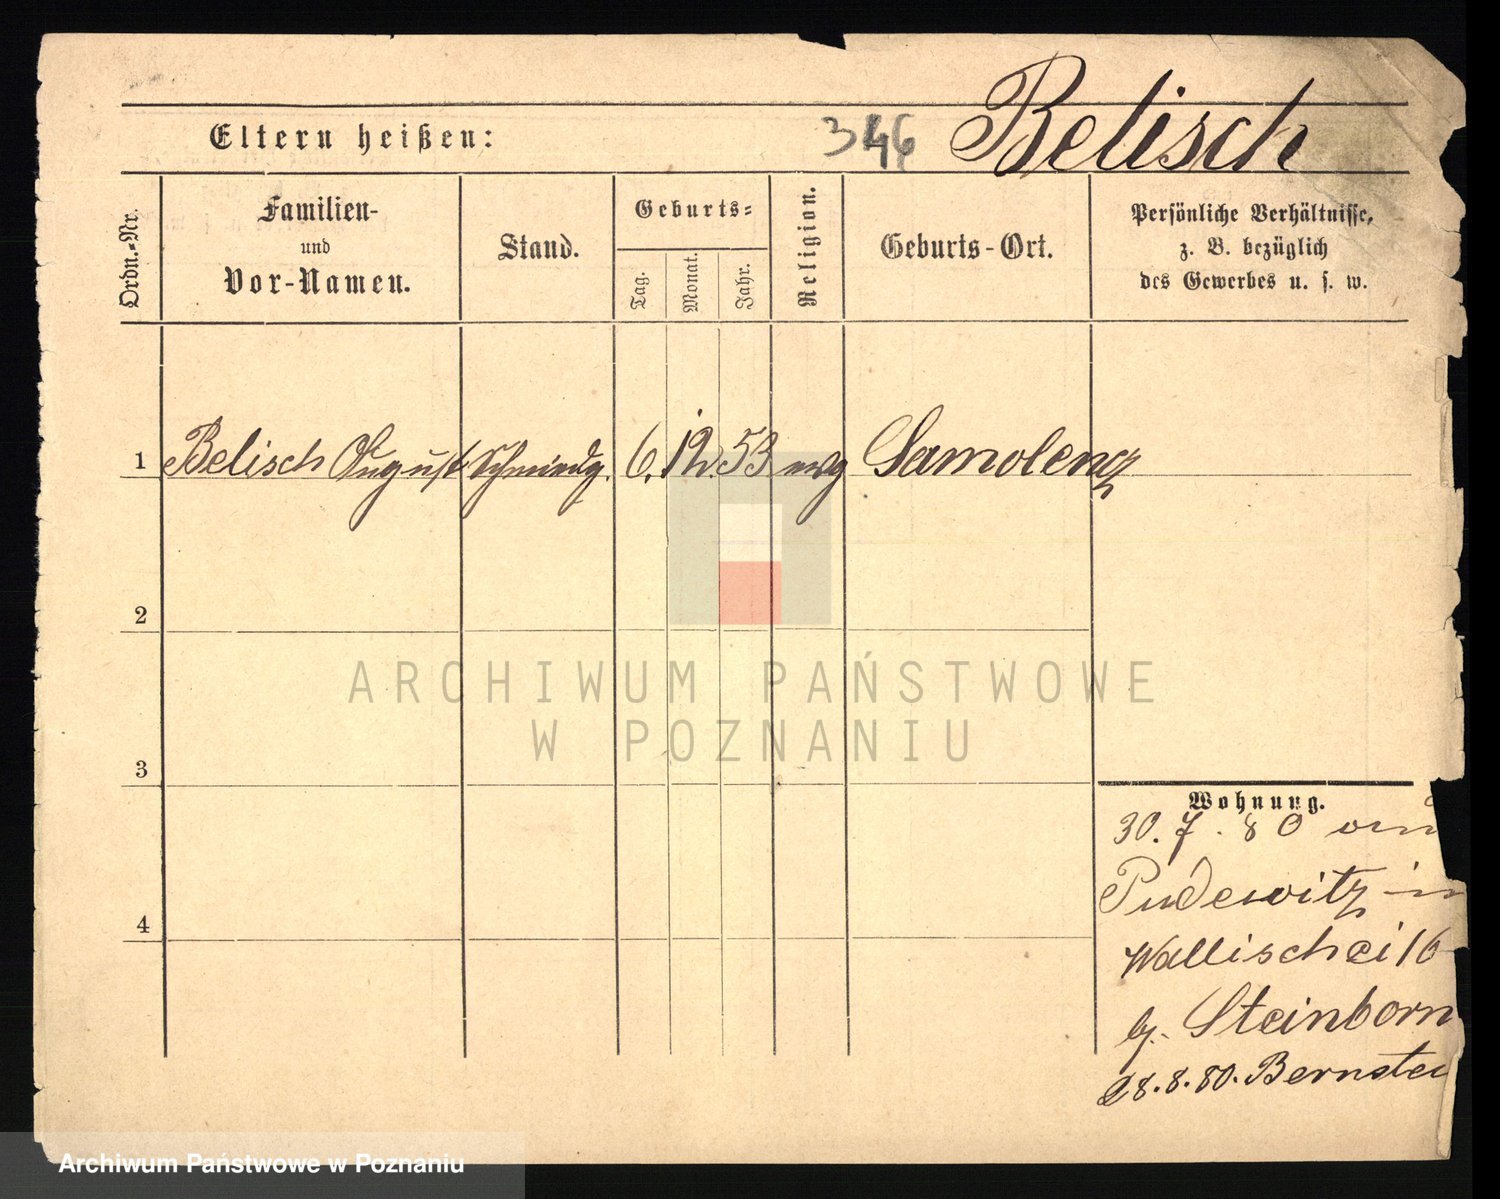 Eltern heißen: 346 Belisch
Ordn.-Nr.
Familien-
und
Vor-Namen.
Stand.
Geburts-
Tag.
Monat.
Jahr.
Religion.
Geburts-Ort.
Persönliche Verhältnisse,
z. B. bezüglich
des Gewerbes u. s. w.
1 Belisch August Schmiedg. 6. 12. 53 evg Samolenz
2
ARCHIWUM PAŃSTWOWE
W POZNANIU
3
Wohnung.
30. 7. 80 von
Pudewitz in
4
Wallischei 16
b. Steinborn
28. 8. 80. Bernstei
Archiwum Państwowe w Poznaniu